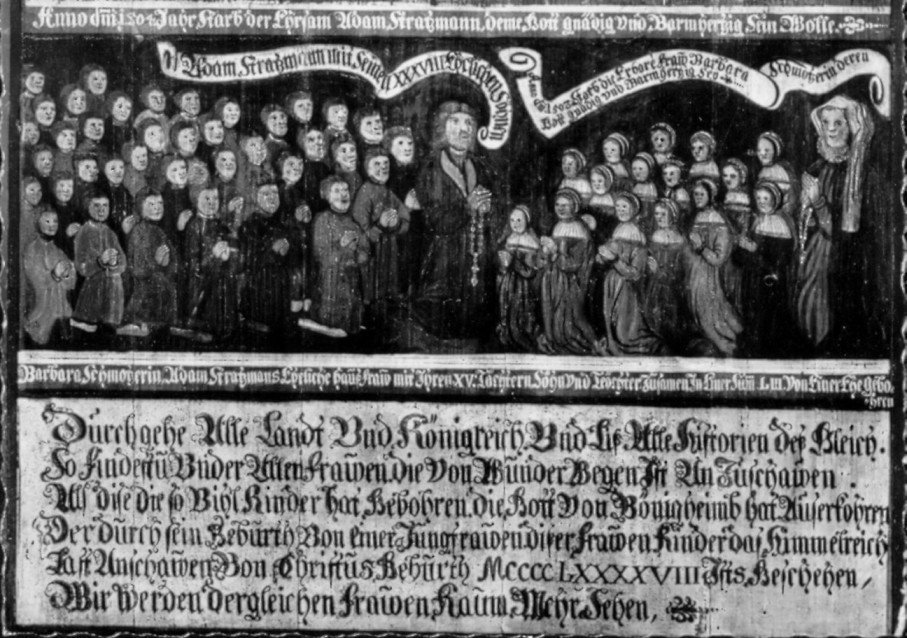 Anno dmi 1504 Jahr Starb der Ehrsam Adam Stratzmann, deme Gott gnädig vnd Barmhertzig Sein Wolle.
Adam Stratzmann mit Seinen XXXVIII Ehelichen Söhnen
Anno 1503 Starb die Erbare Fraw Barbara Schmotzerin deren
Gott gnädig vnd Barmhertzig Sey
Barbara Schmotzerin, Adam Stratzmans Eheliche haus fraw mit Ihren XV. Töchtern, Söhn vnd Töchter Zusamen In Einer Sum LIII Von Einer Ehe Gebo-
hren
Durchgehe Alle Landt Vnd Königreich, Vnd Lis Alle Historien des Gleich.
So findestu Vnder Allen frawen, die Von Wunder Wegen Ist An Zuschawen.
Als dise die so Vihl Kinder hat Gebohren, die Gott Von Bönigheimb hat Auserkohren
Der durch sein Geburth Von einer Jungfrawen, diser frawen Kinder das himmelreich
Last Anschawen, Von Christus Geburth MCCCCLXXXXVIII Ists Geschehen,
Wir Werden dergleichen frawen Kaum Mehr Sehen,